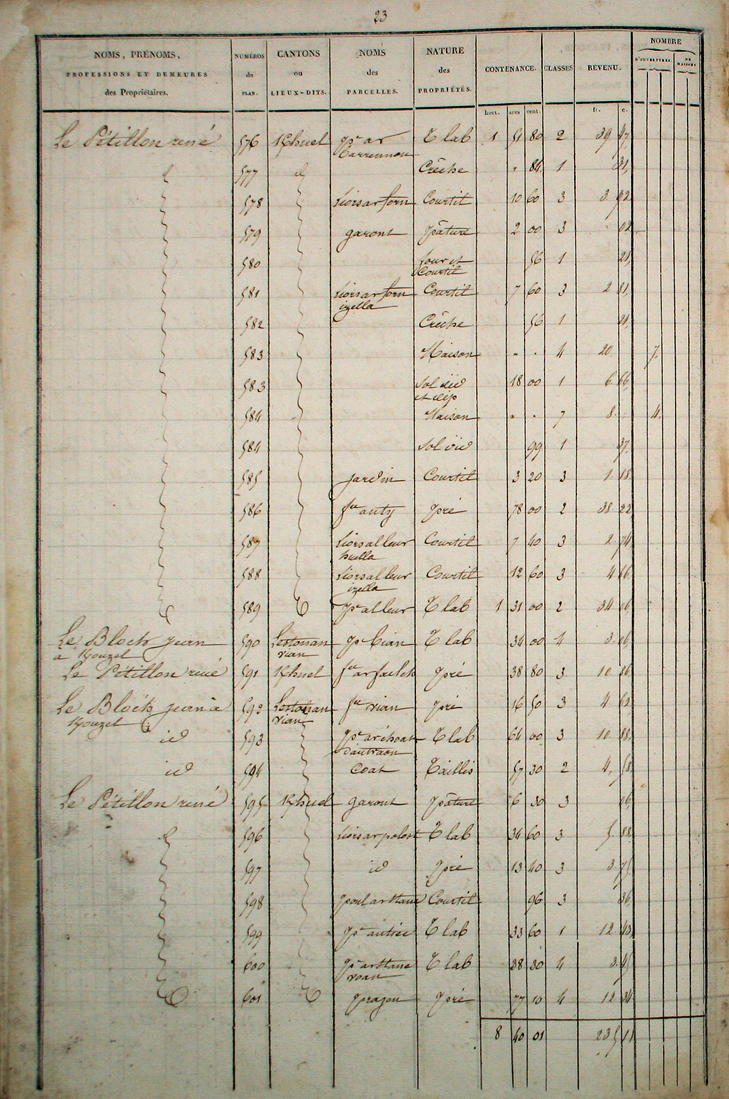 23
NOMS, PRÉNOMS,
PROFESSIONS ET DEMEURES
des Propriétaires.
NUMÉROS
du
PLAN.
CANTONS
ou
LIEUX-DITS.
NOMS
des
PARCELLES.
NATURE
des
PROPRIÉTÉS.
CONTENANCE.
CLASSES
REVENU.
NOMBRE
D'OUVERTURES.
DE MAISONS
hect. ares cent. fr. c.
Le Pétillon rené 576 Khuel pc ar T lab 1 51 80 2 39 47
577 Crêche 84 1 31
578 liorsarforn Courtil 10 60 3 3 92
579 garont pâture 2 00 3 02
580 Cour et 56 1 21
Courtil
581 liorsarforn Courtil 7 60 3 2 81
izella
582 Crêche 56 1 21
583 Maison 4 20 7
583 Sol 18 00 1 6 66
584 Maison 7 8 4
584 Sol 99 1 37
585 jardin Courtil 3 20 3 1 18
586 fc anty pré 78 00 2 38 22
587 liorsalleur Courtil 7 40 3 2 74
huella
588 liorsalleur Courtil 12 60 3 4 66
izella
589 pc alleur T lab 1 31 00 2 34 06
Le Bloch jean 590 Lestonan pc bian T lab 34 00 4 3 06
à Kouzel vian
Le Pétillon rené 591 Khuel pré 38 80 3 10 86
Le Bloch jean à 592 Lestonan fc vian pré 16 50 3 4 62
Kouzel vian
id 593 T lab 64 00 3 10 88
id 594 Coat Taillis 57 30 2 4 58
Le Pétillon rené 595 Khuel garont pâture 6 30 3 06
596 T lab 34 60 3 5 88
597 id pré 13 40 3 3 75
598 Courtil 96 3 36
599 T lab 33 60 1 12 43
600 T lab 38 30 4 3 45
601 prajou pré 77 10 4 12 34
8 40 01 235 11